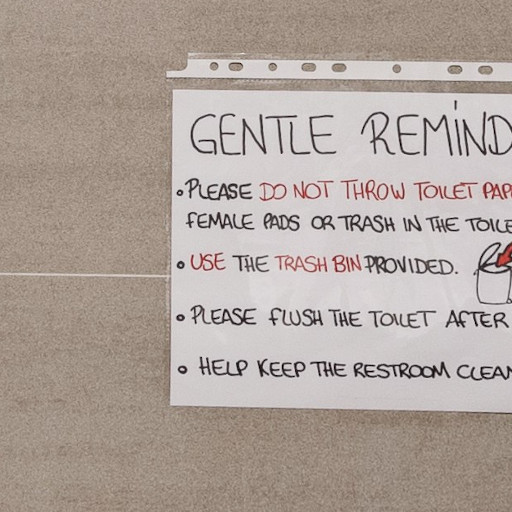 GENTLE REMIND
• PLEASE DO NOT THROW TOILET PAP
FEMALE PADS OR TRASH IN THE TOILE
• USE THE TRASH BIN PROVIDED.
• PLEASE FLUSH THE TOILET AFTER
• HELP KEEP THE RESTROOM CLEAN